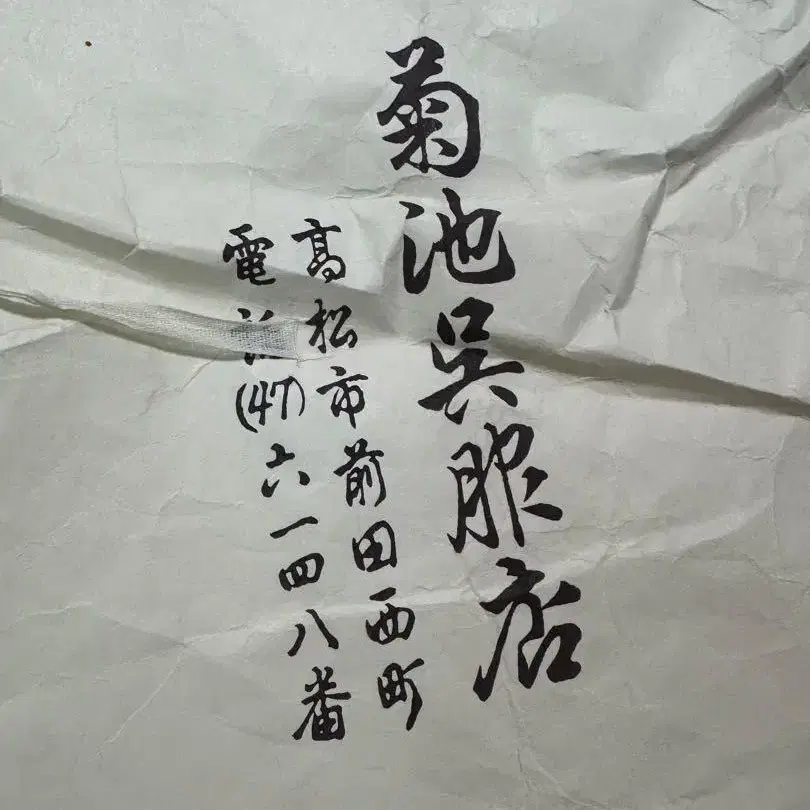 菊池呉服店
高松市前田西町
電話(47)六一四八番